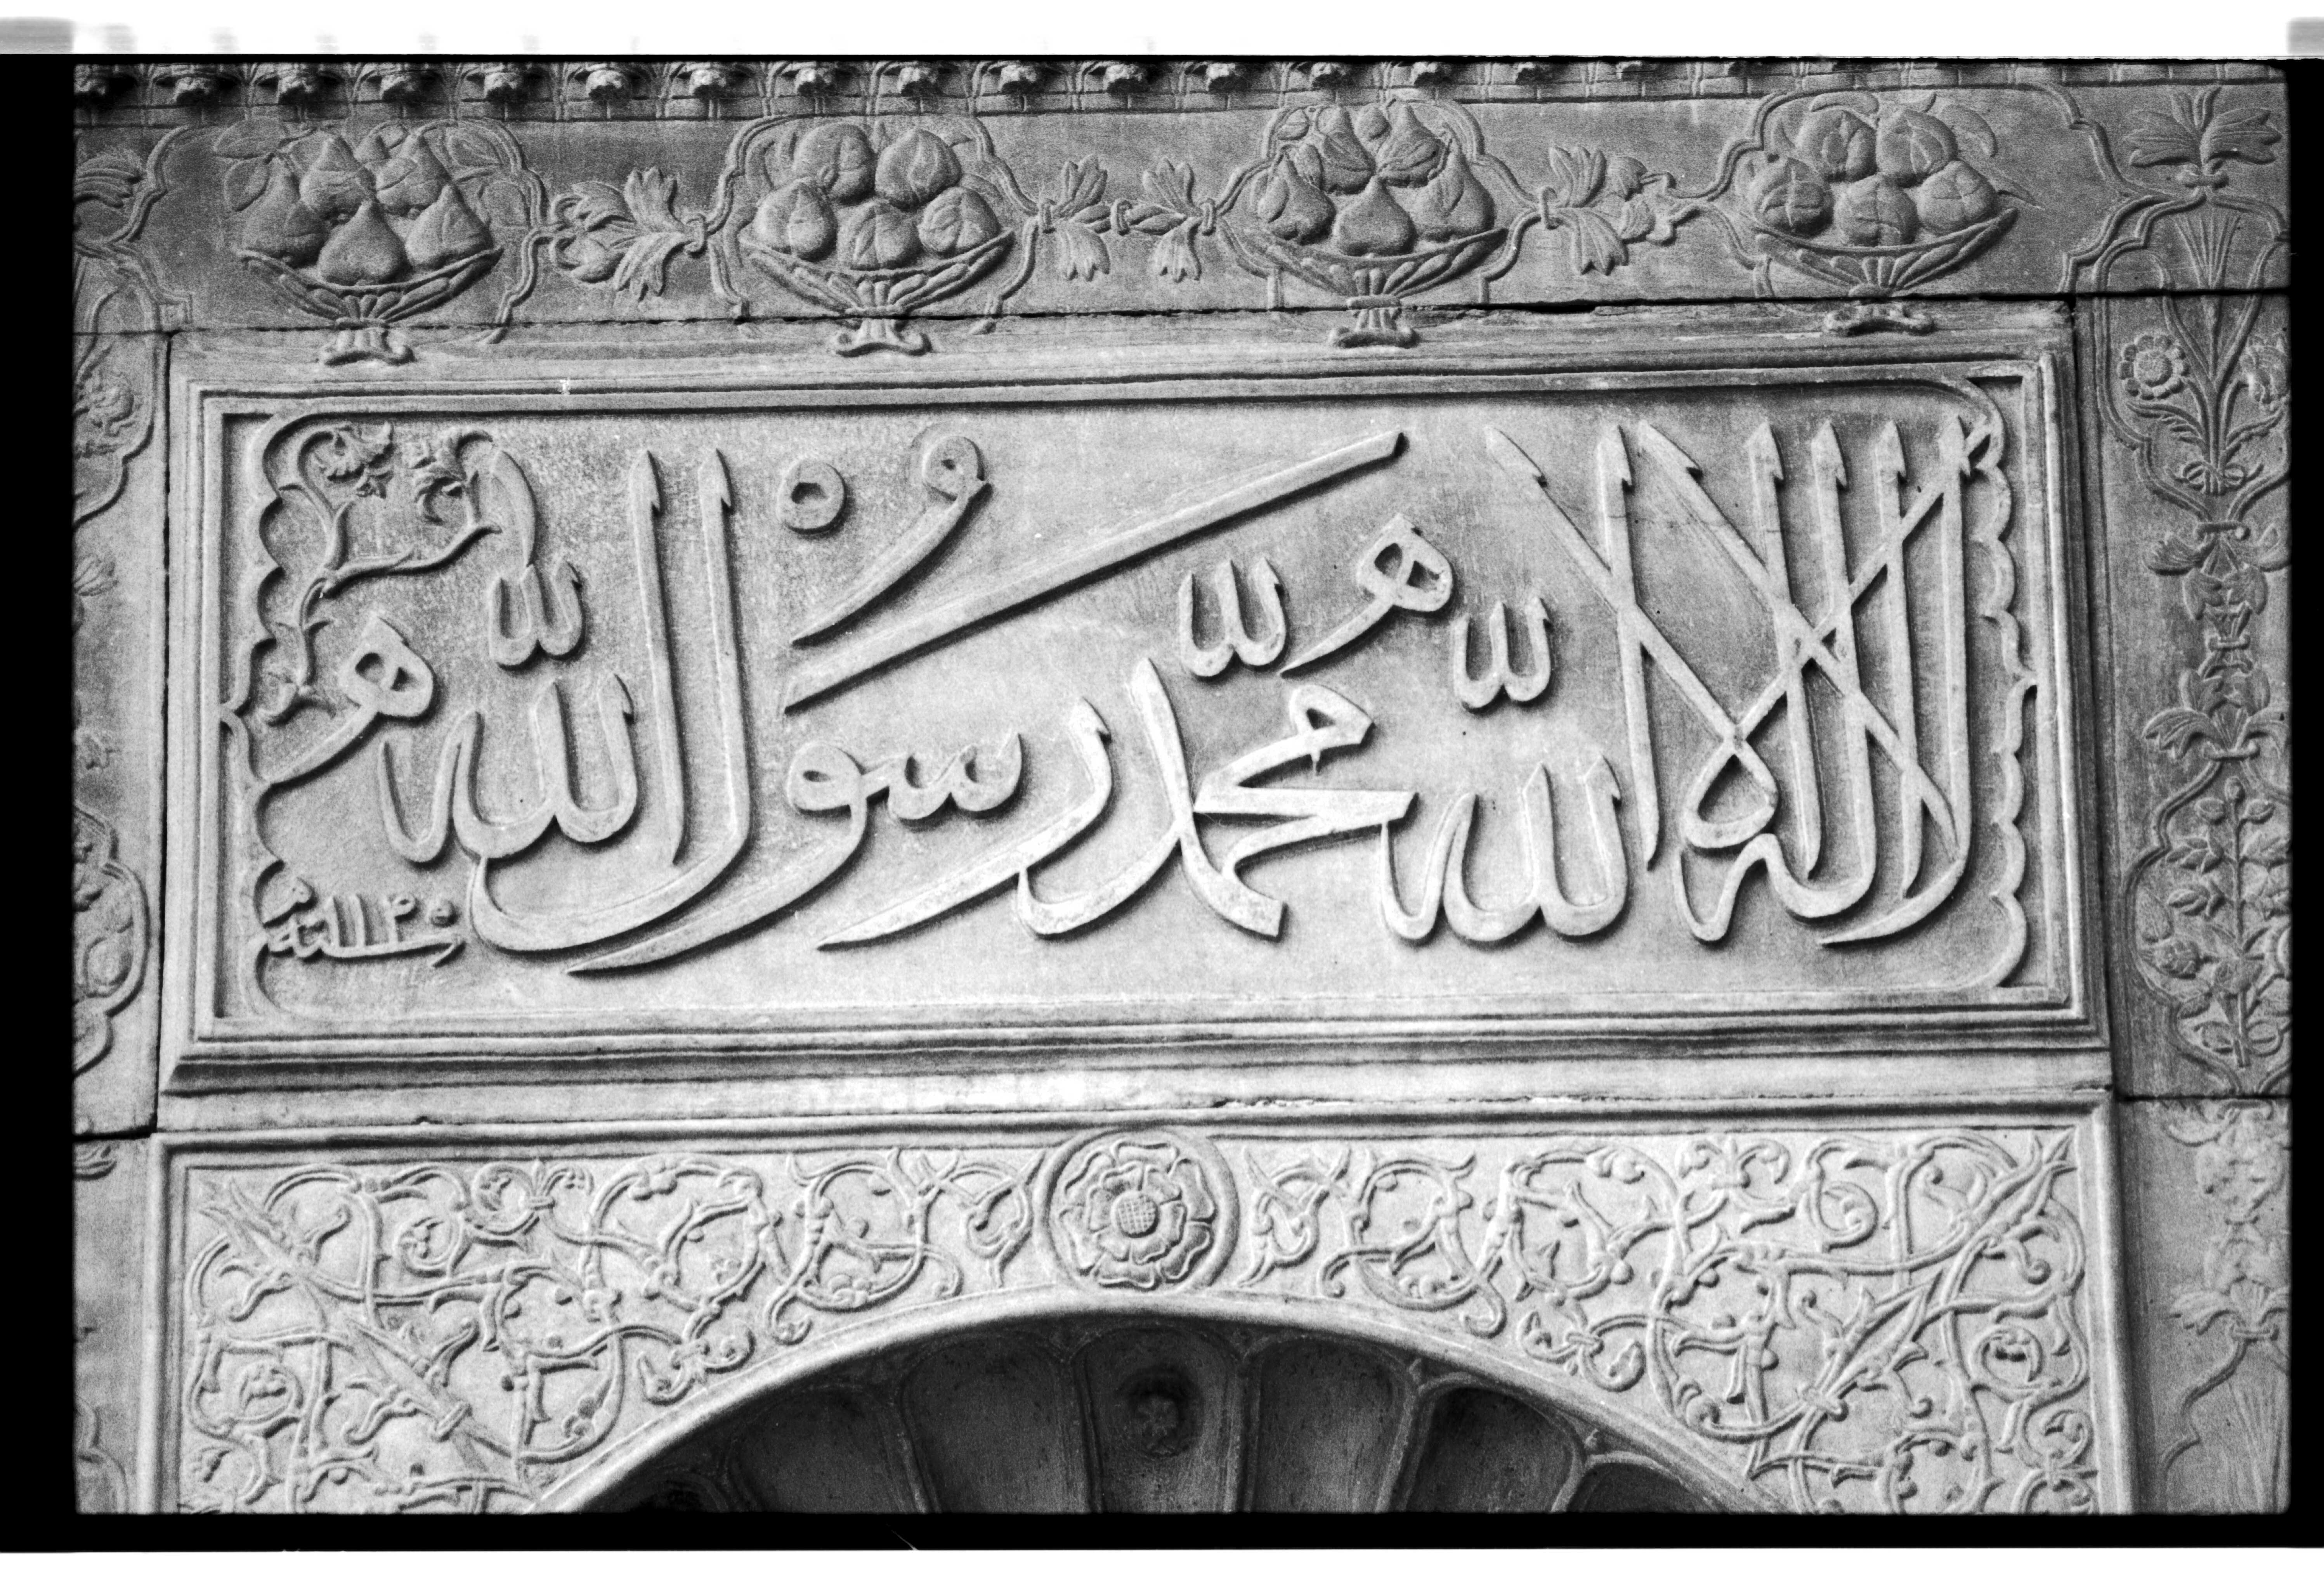 لا اله الا الله محمد رسول الله
سنه ١١٤٥